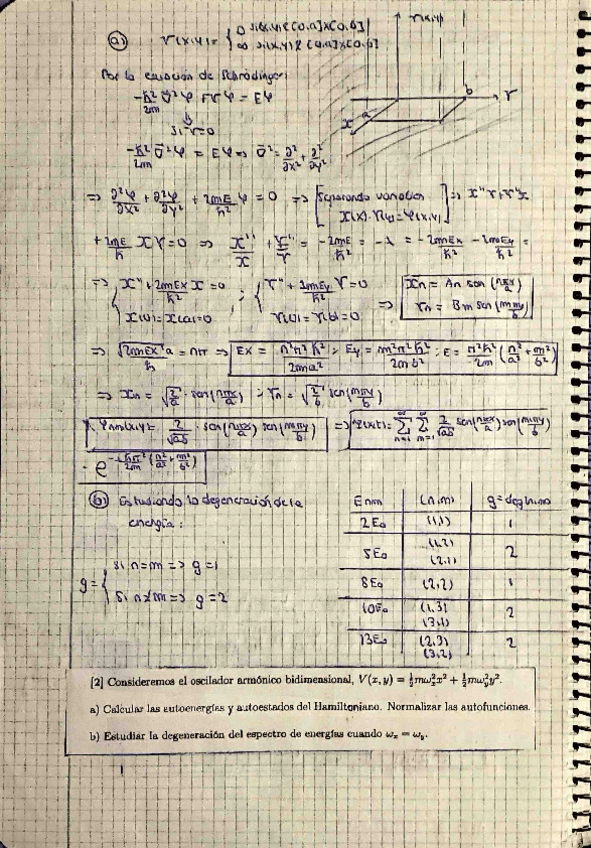 a) V(x,y) = { 0 si (x,y) ∈ [0,a]x[0,b]
∞ si (x,y) ∉ [0,a]x[0,b]
V(x,y)
b
Y
a
x
Por la ecuación de Schrödinger:
-ħ²/2m ∇²φ + Vφ = Eφ
⇓
si V=0
-ħ²/2m ∇²φ = Eφ => ∇² = ∂²/∂x² + ∂²/∂y²
=> ∂²φ/∂x² + ∂²φ/∂y² + 2mE/ħ² φ = 0 => [Separando variables X(x)·Y(y) = φ(x,y)] => X''Y + Y''X
+ 2mE/ħ XY = 0 => X''/X + Y''/Y = -2mE/ħ² = -λ = -2mEx/ħ² - 2mEy/ħ² =
=> { X'' + 2mEx/ħ² X = 0 ; { Y'' + 2mEy/ħ² Y = 0 => Xn = An sen(nπx/a)
X(0) = X(a) = 0 Y(0) = Y(b) = 0 Ym = Bm sen(mπy/b)
=> √2mEx/ħ a = nπ => Ex = n²π²ħ²/2ma² ; Ey = m²π²ħ²/2mb² ; E = π²ħ²/2m (n²/a² + m²/b²)
=> Xn = √2/a · sen(nπx/a) ; Yn = √2/b sen(mπy/b)
φnm(x,y) = 2/√ab · sen(nπx/a) sen(mπy/b) => Σ n=1 ∞ Σ m=1 ∞ 2/√ab sen(nπx/a) sen(mπy/b)
b) Estudiando la degeneración de la
energía:
g = { si n=m => g=1
si n≠m => g=2
Enm (n,m) g=deg(n,m)
2E₀ (1,1) 1
5E₀ (1,2) (2,1) 2
8E₀ (2,2) 1
10E₀ (1,3) (3,1) 2
13E₀ (2,3) (3,2) 2
[2] Consideremos el oscilador armónico bidimensional, V(x, y) = ½mω²ₓx² + ½mω²ᵧy².
a) Calcular las autoenergías y autoestados del Hamiltoniano. Normalizar las autofunciones.
b) Estudiar la degeneración del espectro de energías cuando ωₓ = ωᵧ.